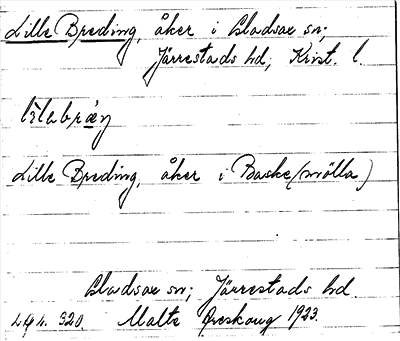 Lille Breding, åker i Gladsax sn;
Järrestads hd, Krist. l.
Lille Breding, åker i Baske(mölla)
Gladsax sn; Järrestads hd.
320. Malte Areskoug 1923.